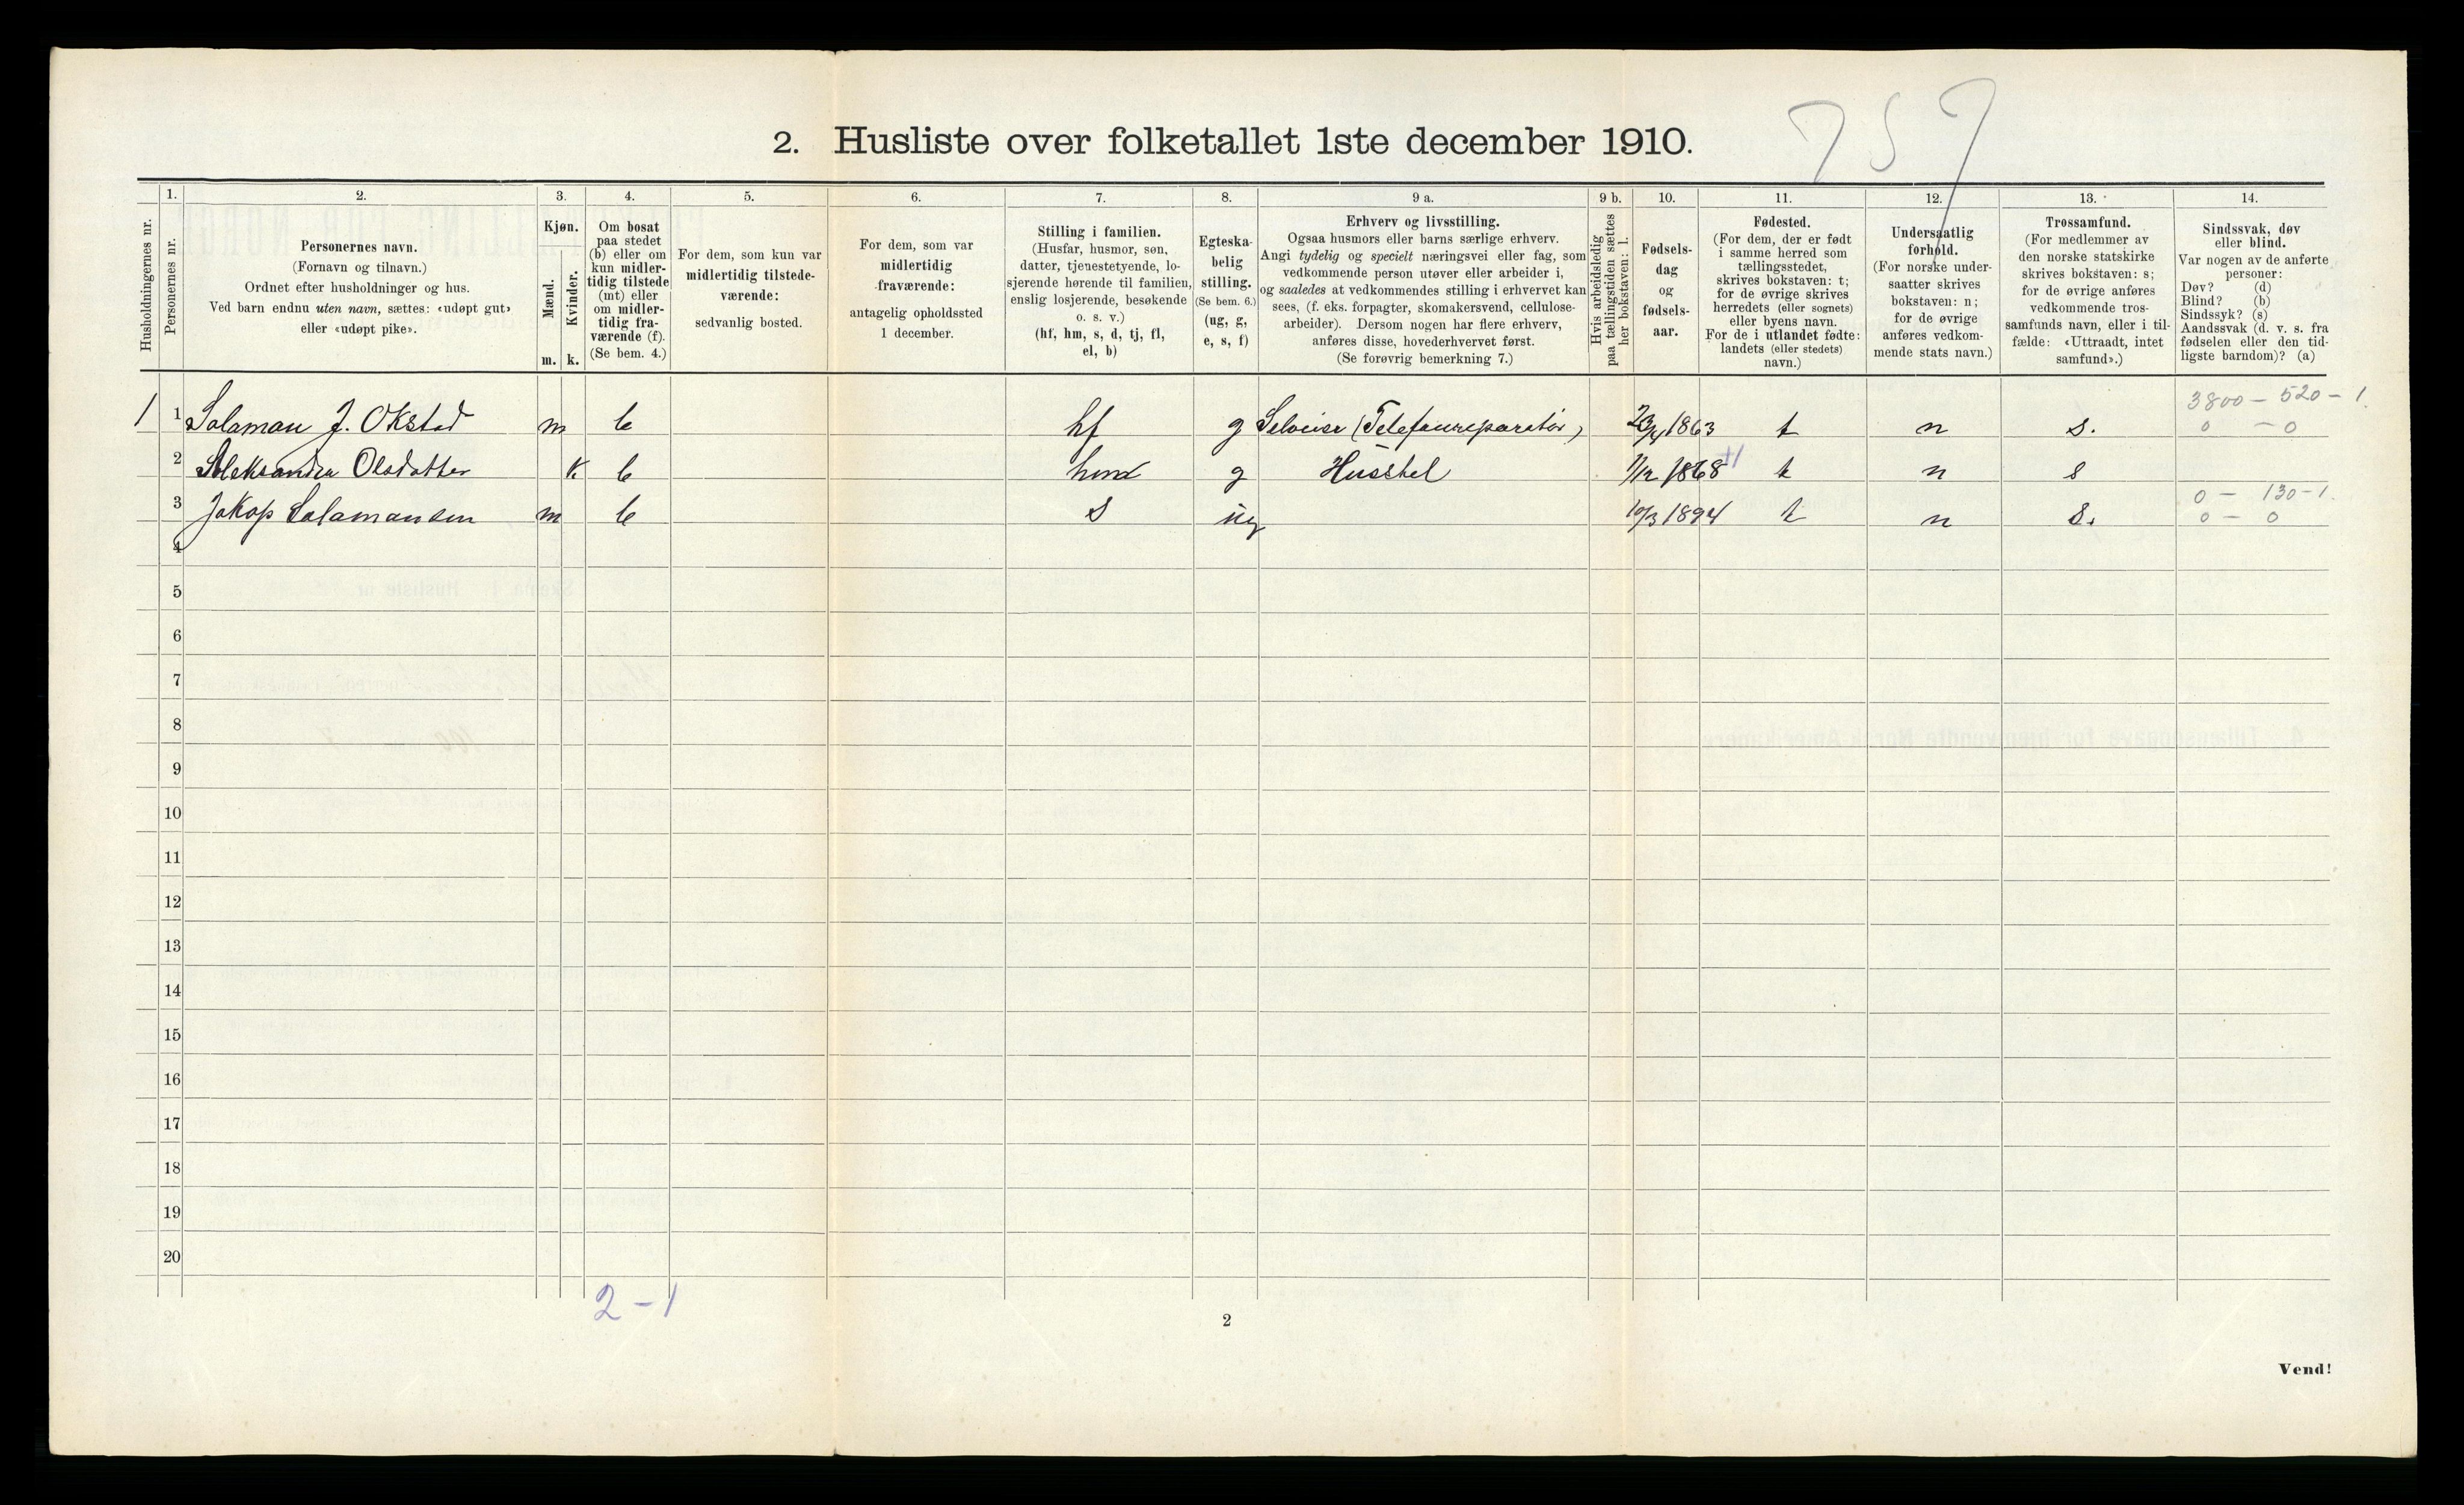 757
2. Husliste over folketallet 1ste december 1910.
Husholdningernes nr.
1.
Personernes nr.
2.
Personernes navn.
(Fornavn og tilnavn.)
Ordnet efter husholdninger og hus.
Ved barn endnu uten navn, sættes: «udøpt gut»
eller «udøpt pike».
3.
Kjøn.
Mænd.
Kvinder.
m. k.
4.
Om bosat
paa stedet
(b) eller om
kun midler-
tidig tilstede
(mt) eller
om midler-
tidig fra-
værende (f).
(Se bem. 4.)
5.
For dem, som kun var
midlertidig tilstede-
værende:
sedvanlig bosted.
6.
For dem, som var
midlertidig
fraværende:
antagelig opholdssted
1 december.
7.
Stilling i familien.
(Husfar, husmor, søn,
datter, tjenestetyende, lo-
sjerende hørende til familien,
enslig losjerende, besøkende
o. s. v.)
(hf, hm, s, d, tj, fl,
el, b)
8.
Egteska-
belig
stilling.
(Se bem. 6.)
(ug, g,
e, s, f)
9 a.
Erhverv og livsstilling.
Ogsaa husmors eller barns særlige erhverv.
Angi tydelig og specielt næringsvei eller fag, som
vedkommende person utøver eller arbeider i,
og saaledes at vedkommendes stilling i erhvervet kan
sees, (f. eks. forpagter, skomakersvend, cellulose-
arbeider). Dersom nogen har flere erhverv,
anføres disse, hovederhvervet først.
(Se forøvrig bemerkning 7.)
9 b.
Hvis arbeidsledig
paa tællingstiden sættes
her bokstaven: l.
10.
Fødsels-
dag
og
fødsels-
aar.
11.
Fødested.
(For dem, der er født
i samme herred som
tællingsstedet,
skrives bokstaven: t;
for de øvrige skrives
herredets (eller sognets)
eller byens navn.
For de i utlandet fødte:
landets (eller stedets)
navn.)
12.
Undersaatlig
forhold.
(For norske under-
saatter skrives
bokstaven: n;
for de øvrige
anføres vedkom-
mende stats navn.)
13.
Trossamfund.
(For medlemmer av
den norske statskirke
skrives bokstaven: s;
for de øvrige anføres
vedkommende tros-
samfunds navn, eller i til-
fælde: «Uttraadt, intet
samfund».)
14.
Sindssvak, døv
eller blind.
Var nogen av de anførte
personer:
Døv? (d)
Blind? (b)
Sindssyk? (s)
Aandssvak (d. v. s. fra
fødselen eller den tid-
ligste barndom)? (a)
3800 – 520 – 1.
1 1 Salamon J. Okstad m b hf g Selveier (Telefonreparatør) 1863 t n s. 0 – 0
2 Aleksandra Olsdatter k b hm g Husstel 1/12 1868 t n s
0 – 130 – 1.
3 Jakop Salamonsen m b s ug 10/3 1894 t n s. 0 – 0
4
5
6
7
8
9
10
11
12
13
14
15
16
17
18
19
20
2 – 1
2
Vend!